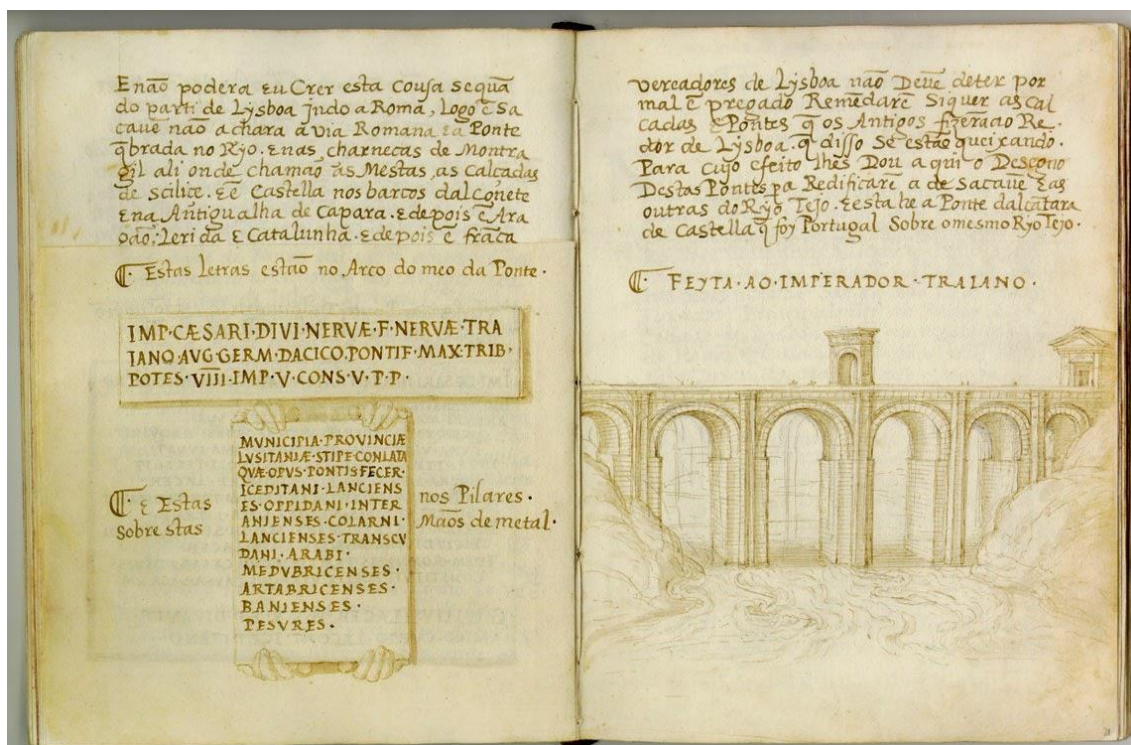 E não podera eu Crer esta Cousa se quã
do parti de Lysboa jndo a Roma, Logo ẽ Sa
cauẽ não achara a via Romana ɛa Ponte
q̃brada no Ryo. ɛnas charnecas de Montra
gil ali onde chamão as Mestas, as Calçadas
de scilice. ɛẽ Castella nos barcos dalconete
ɛna Antigualha de Capara. ɛdepois ẽ Ara
gão, Lerida ɛ Catalunha. ɛdepois ẽ frãca
Estas Letras estão no Arco do meo da Ponte.
IMP·CÆSARI·DIVI·NERVÆ·F·NERVÆ·TRA
IANO·AVG·GERM·DACICO·PONTIF·MAX·TRIB·
POTES·VIIII·IMP·V·CONS·V·P·P·
MVNICIPIA·PROVINCIÆ
LVSITANIÆ·STIPE·CONLATA
QVÆ·OPVS·PONTIS·FECER·
ICEDITANI·LANCIENS
ES·OPPIDANI·INTER
ANIENSES·COLARNI·
LANCIENSES·TRANSCV
DANI·ARABI·
MEDVBRICENSES·
ARTABRICENSES·
BANIENSES·
PESVRES·
ɛ Estas nos Pilares.
Sobre stas Mãos de metal.
vereadores de Lysboa não Devẽ deter por
mal ẽ pregado Remedarẽ Siquer as cal
cadas ɛ Pontes q̃ os Antigos fizerão Re.
dor de Lysboa. q̃ disso se estão queixando.
Para cujo efeito lhes Dou aqui o Desegno
Destas Pontes pa Redificarẽ a de sacauẽ ɛas
outras do Ryo Tejo. ɛesta he a Ponte dalcãtara
de Castella q̃ foy Portugal Sobre o mesmo Ryo Tejo.
FEYTA·AO·IMPERADOR·TRAIANO·